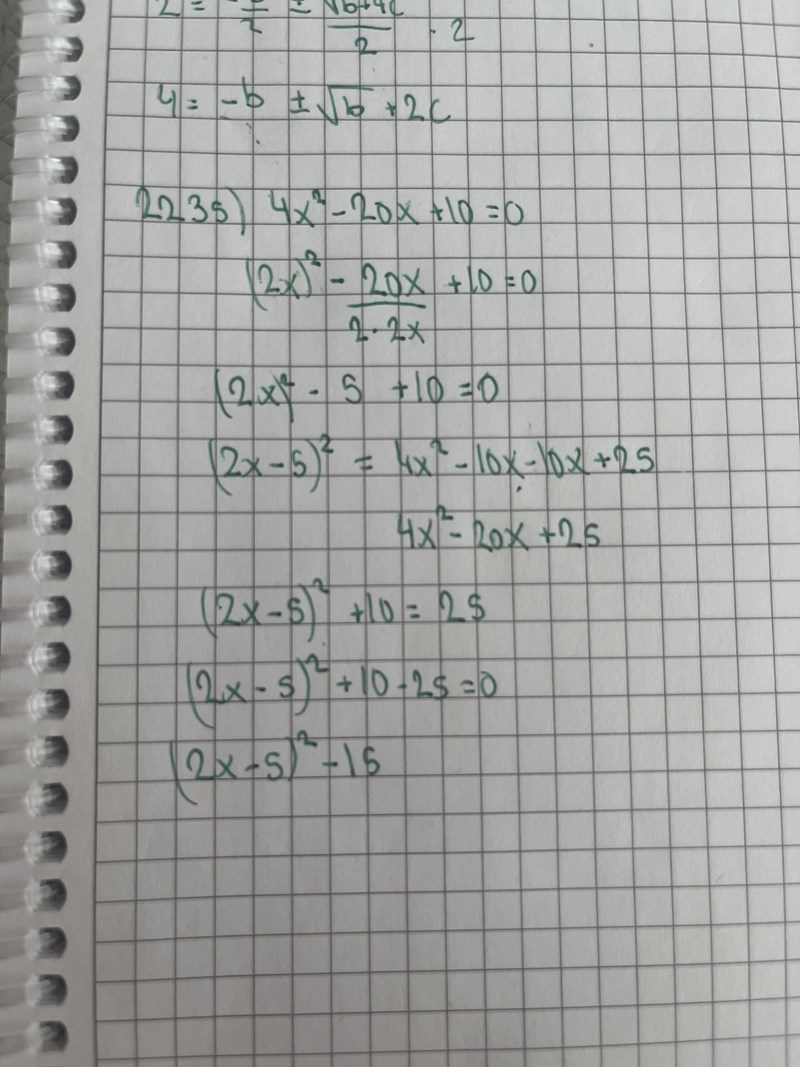 2 = -b/2 ± √b+4c/2 · 2
4 = -b ± √b + 2c
2235) 4x² - 20x + 10 = 0
(2x)² - 20x/2·2x + 10 = 0
(2x)² - 5 + 10 = 0
(2x-5)² = 4x² - 10x - 10x + 25
4x² - 20x + 25
(2x-5)² + 10 = 25
(2x-5)² + 10 - 25 = 0
(2x-5)² - 15